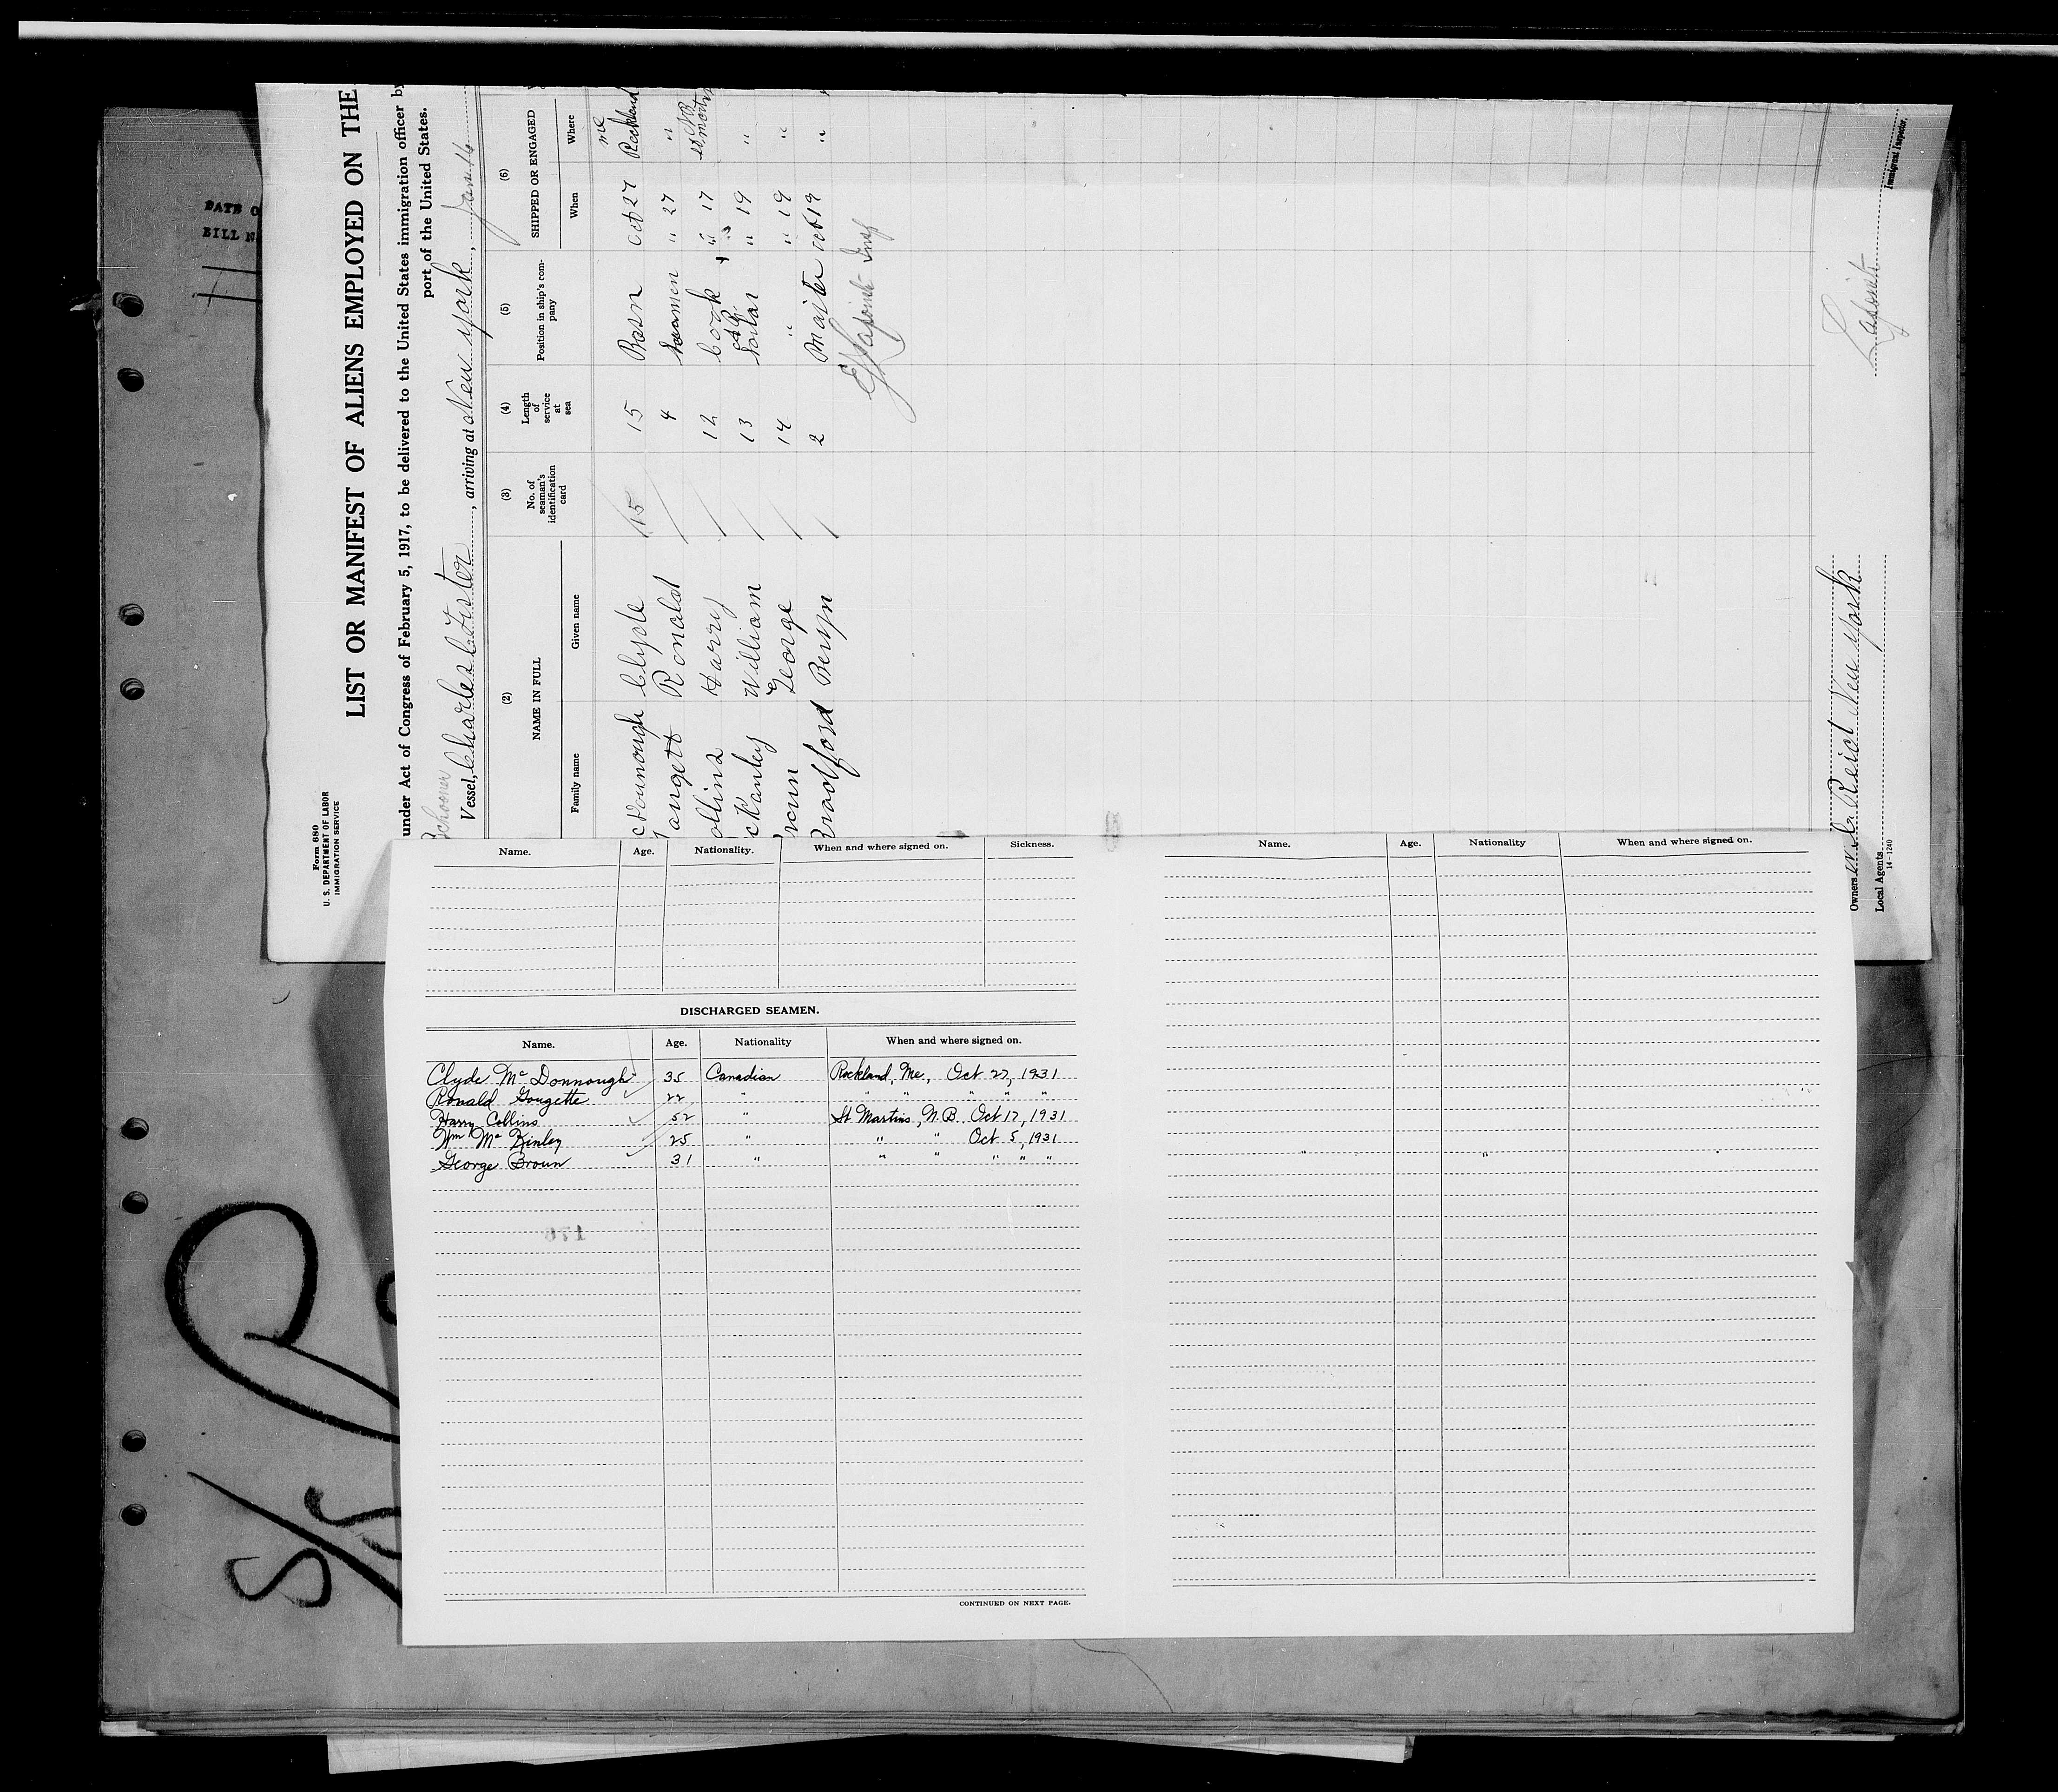 DATE O
BILL N
Form 680
U. S. DEPARTMENT OF LABOR
IMMIGRATION SERVICE
LIST OR MANIFEST OF ALIENS EMPLOYED ON THE
under Act of Congress of February 5, 1917, to be delivered to the United States immigration officer by
port of the United States.
Schooner
Vessel, Charles C Lister, arriving at New York, Jan 16
(2) (3) (4) (5) (6)
NAME IN FULL No. of seaman's identification card Length of service at sea Position in ship's company SHIPPED OR ENGAGED
Family name Given name When Where
Me
cDonnough Clyde 15 15 Bosn Oct 27 Rockland
Gangett Ronald 4 Seamen " 27 "
ollins Harry 12 Cook " 17 St Martins NB
cKanley William 13 Sailor " 19 "
rown George 14 " " 19 "
Bradford Beryn 2 Master Oct 19 "
Lapointe Insp
Lapointe
Immigrant Inspector.
Owners C Reid New York
Local Agents
14-1240
Name. Age. Nationality. When and where signed on. Sickness.
DISCHARGED SEAMEN.
Name. Age. Nationality When and where signed on.
Clyde Mc Donnough 35 Canadian Rockland, Me, Oct 27, 1931
Ronald Gougette 22 " " " " " "
Harry Collins 52 " St Martins, N.B. Oct 17, 1931
Wm Mc Kinley 25 " " " Oct 5, 1931
George Brown 31 " " " " " "
176
CONTINUED ON NEXT PAGE.
Name. Age. Nationality When and where signed on.